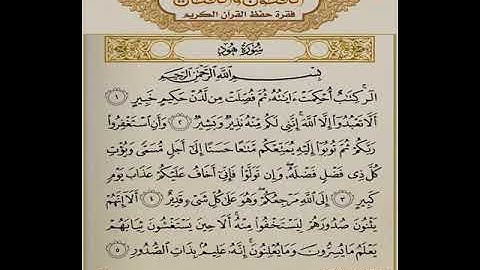 فقرة حفظ القرآن الكريم
سُورَةُ هُودٍ
بِسْمِ اللَّهِ الرَّحْمَٰنِ الرَّحِيمِ
الٓر ۚ كِتَٰبٌ أُحْكِمَتْ ءَايَٰتُهُۥ ثُمَّ فُصِّلَتْ مِن لَّدُنْ حَكِيمٍ خَبِيرٍ ١
أَلَّا تَعْبُدُوٓا۟ إِلَّا ٱللَّهَ ۚ إِنَّنِى لَكُم مِّنْهُ نَذِيرٌ وَبَشِيرٌ ٢ وَأَنِ ٱسْتَغْفِرُوا۟
رَبَّكُمْ ثُمَّ تُوبُوٓا۟ إِلَيْهِ يُمَتِّعْكُم مَّتَٰعًا حَسَنًا إِلَىٰٓ أَجَلٍ مُّسَمًّى وَيُؤْتِ
كُلَّ ذِى فَضْلٍ فَضْلَهُۥ ۖ وَإِن تَوَلَّوْا۟ فَإِنِّىٓ أَخَافُ عَلَيْكُمْ عَذَابَ يَوْمٍ
كَبِيرٍ ٣ إِلَى ٱللَّهِ مَرْجِعُكُمْ ۖ وَهُوَ عَلَىٰ كُلِّ شَىْءٍ قَدِيرٌ ٤ أَلَآ إِنَّهُمْ
يَثْنُونَ صُدُورَهُمْ لِيَسْتَخْفُوا۟ مِنْهُ ۚ أَلَا حِينَ يَسْتَغْشُونَ ثِيَابَهُمْ
يَعْلَمُ مَا يُسِرُّونَ وَمَا يُعْلِنُونَ ۚ إِنَّهُۥ عَلِيمٌۢ بِذَاتِ ٱلصُّدُورِ ٥